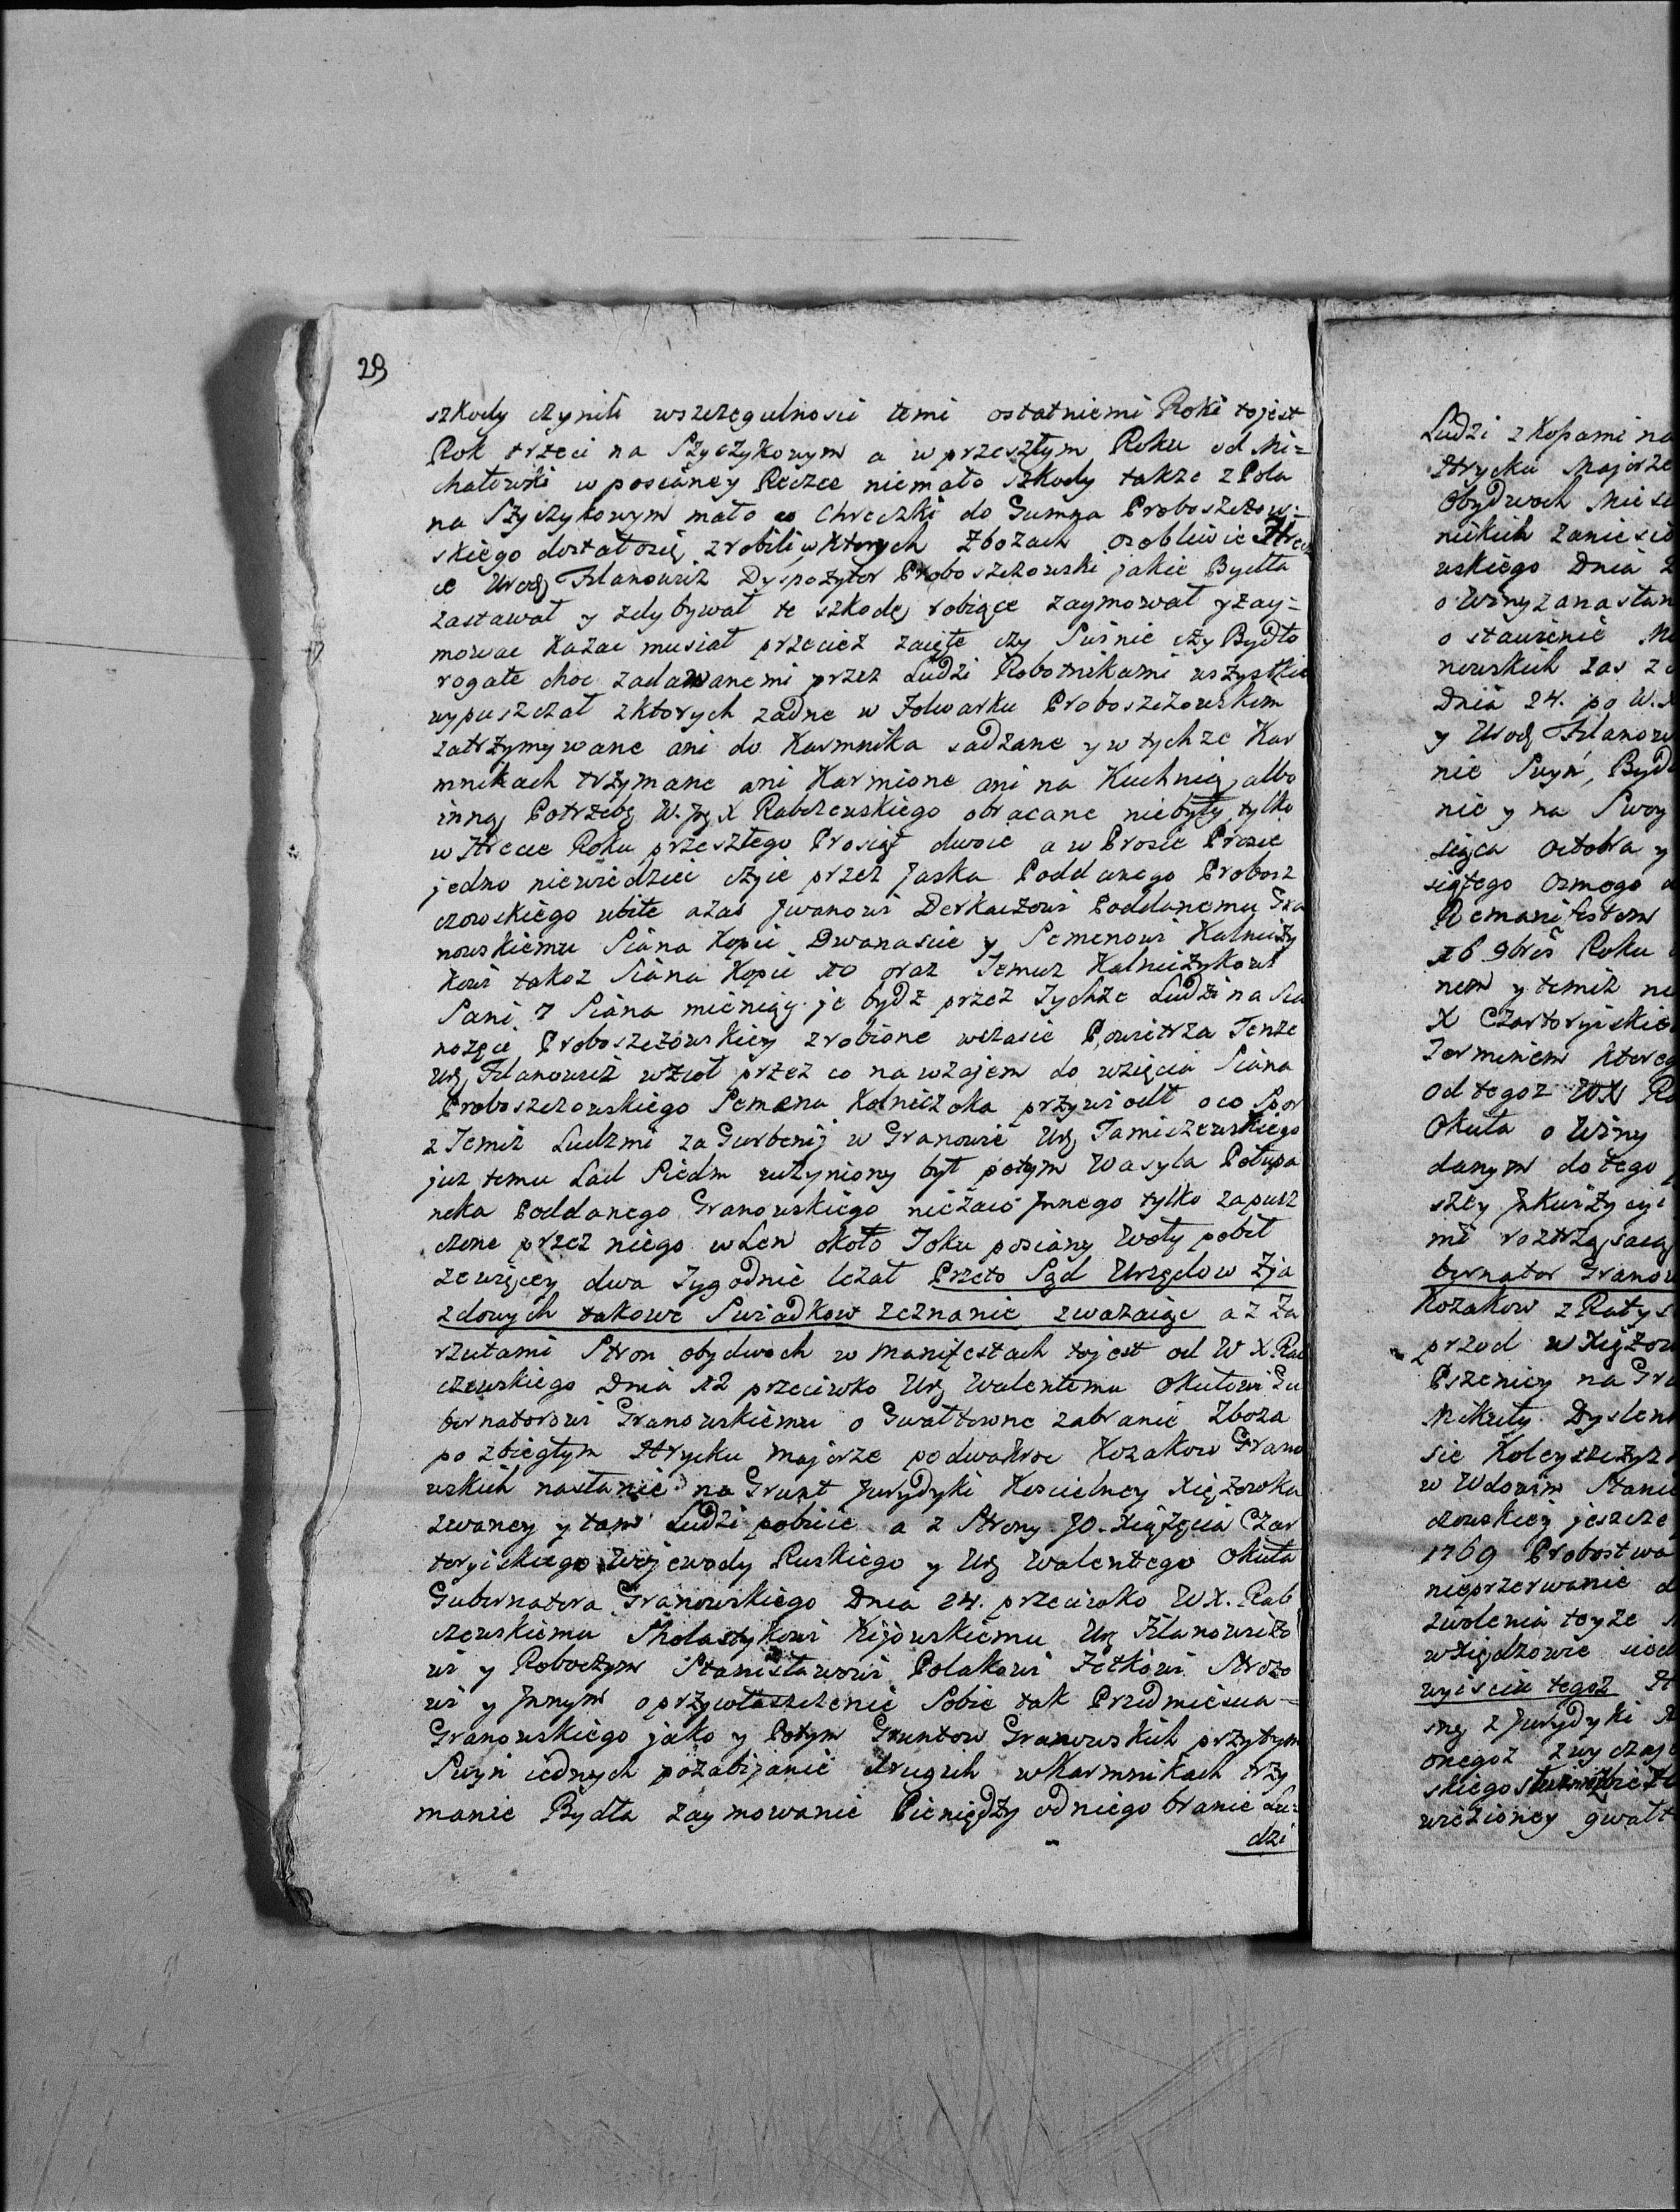 29
szkody czynili wszczegulnosci temi ostatniemi Roki tojest
Rok trzeci na Szyszykowym a w przeszłym Roku od Mi=
chałowki w posianey Reczce niemało szkody także z Pola
na Szyszykowym mało co Chreczki do Gumna Proboszczow=
skiego dostałosię zrobili w ktorych Zbożach osobliwie Hrecz
ce Urodz Filanowicz Dyspozytor Proboszczowski jakie Bydła
zastawał y zdybywał te szkodę robiące zaymował y zay=
mowac kazac musiał przecież zaięte czy Swinie czy Bydło
rogate choc zadawanemi przez Ludzi Robotnikami wszystkie
wypuszczał z ktorych żadne w Folwarku Proboszczowskim
zatrzymywane ani do Karmnika sadzane y w tychże Kar
mnikach trzymane ani Karmione ani na Kuchnię albo
inną Potrzebę W. Jg X Rabczewskiego obracane niebyły tylko
w Hrecce Roku przeszłego Prosiąt dwoie a w Prosie Prosie
jedno niewiedzieć czyie przez Jaska Poddanego Probosz
czowskiego ubite azas Jwanowi Derkaczowi Poddanemu Gra
nowskiemu Siana Kopic Dwanascie y Semenowi Kalniczy
kowi takoż Siana Kopic 10 oraz Temuż Kalniczykowi
Sani 7 Siana mieniąc je bydz przez Tychże Ludzi na Sia
nożęci Proboszczowskiey zrobione wczasie Powietrza Tenże
Ur Filanowicz wzioł przez co nawzajem do wzięcia Siana
Proboszczowskiego Semena Kolniczoka przywiodł oco Spor
z Temiż Ludzmi za Gurbenij w Granowie Ur Tamiczewskiego
już temu Lad Siedm uczyniony był potym Wasyla Potupa
neka Poddanego Granowskiego niezaco Jnnego tylko zapusz
czone przez niego w Len około Toku posiany Woły pobił
ze więcey dwa Tygodnie leżał Przeto Sąd Urzędow Zja
zdowych takowe Swiadkow zeznanie zważaiąc a z Za
rzutami Stron obydwoch w Manifestach tojest od W X. Rab
czewskiego Dnia 12 przeciwko Ur Walentemu Okutowi Gu
bernatorowi Granowskiemu o Gwałtowne zabranie Zboża
po zbiegłym Hrycku Majorze podwakroc Kozakow Grano
wskich nasłanie na Grunt Jurydyki Koscielney Xiężowka
zwaney y tam Ludzi pobicie a z Strony JO. Xiążęcia Czar
toryiskiego Wojewody Ruskiego y Ur Walentego Okuta
Gubernatora Granowskiego Dnia 24. przeciwko W X. Rab
czewskiemu Skolastykowi Kijowskiemu Ur Filanowiczo
wi y Roboczym Stanisławowi Polakowi Fetkowi Strozo
wi y Jnnym o przywłaszczenie Sobie tak Przedmiescia
Granowskiego jako y Potym Gruntow Granowskich przytym
Swyń iednych pozabijanie drugich w Karmnikach trzy
manie Bydła zaymowanie Pieniędzy odniego branie Lu=
dzi
Ludzi z Kosami na
Hrycku Majorze
Obydwoch
wskiego Dnia
Dnia 24. po W.
y Urodz Filanow
nie Swyń, Byd
nie y na Swoy
siąca Octobra y
siątego Osmego
Remanifestem
16 9bris Roku
nem y temiż
X Czartoryiskie
Terminem ktoreg
od tegoż WX R
Okuta o Winy
danym do tego
szey Jnkwizycyi
mi roztrząsaią
bernator Granow
Kozakow z Ratys
przod w Xiężow
Pszenicy na Gru
Mikuty
w Wdowim Stani
czowskiey jeszcze
1769 Probostwa
nieprzerwanie
zwolenia teyże
wyiściu tegoż
z Jurydyki
onegoż zwyczaj
wiezioney gwałt